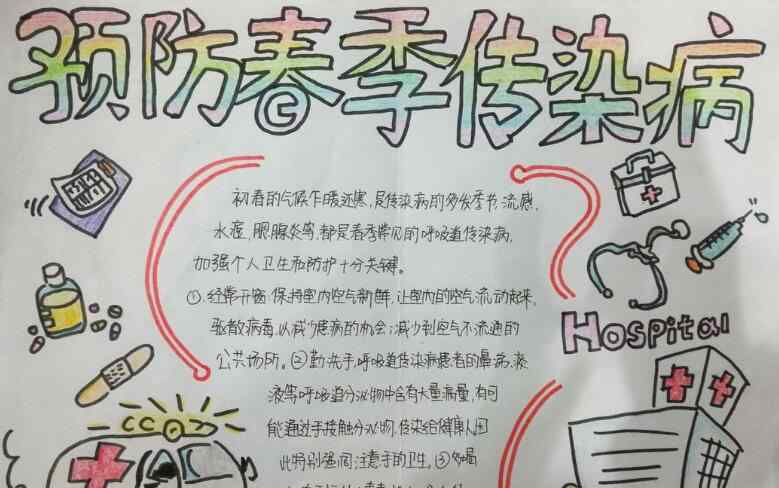 预防春季传染病
初春的气候乍暖还寒,是传染病的多发季节,流感、
水痘、腮腺炎等,都是春季常见的呼吸道传染病,
加强个人卫生和防护十分关键。
①经常开窗,保持室内空气新鲜,让室内的空气流动起来,
驱散病毒,以减少患病的机会;减少到空气不流通的
公共场所。②勤洗手,呼吸道传染病患者的鼻涕、痰
液等呼吸道分泌物中含有大量病量,有可
能通过手接触分泌物,传染给健康人因
此特别强调注意手的卫生。③多喝
Hospital